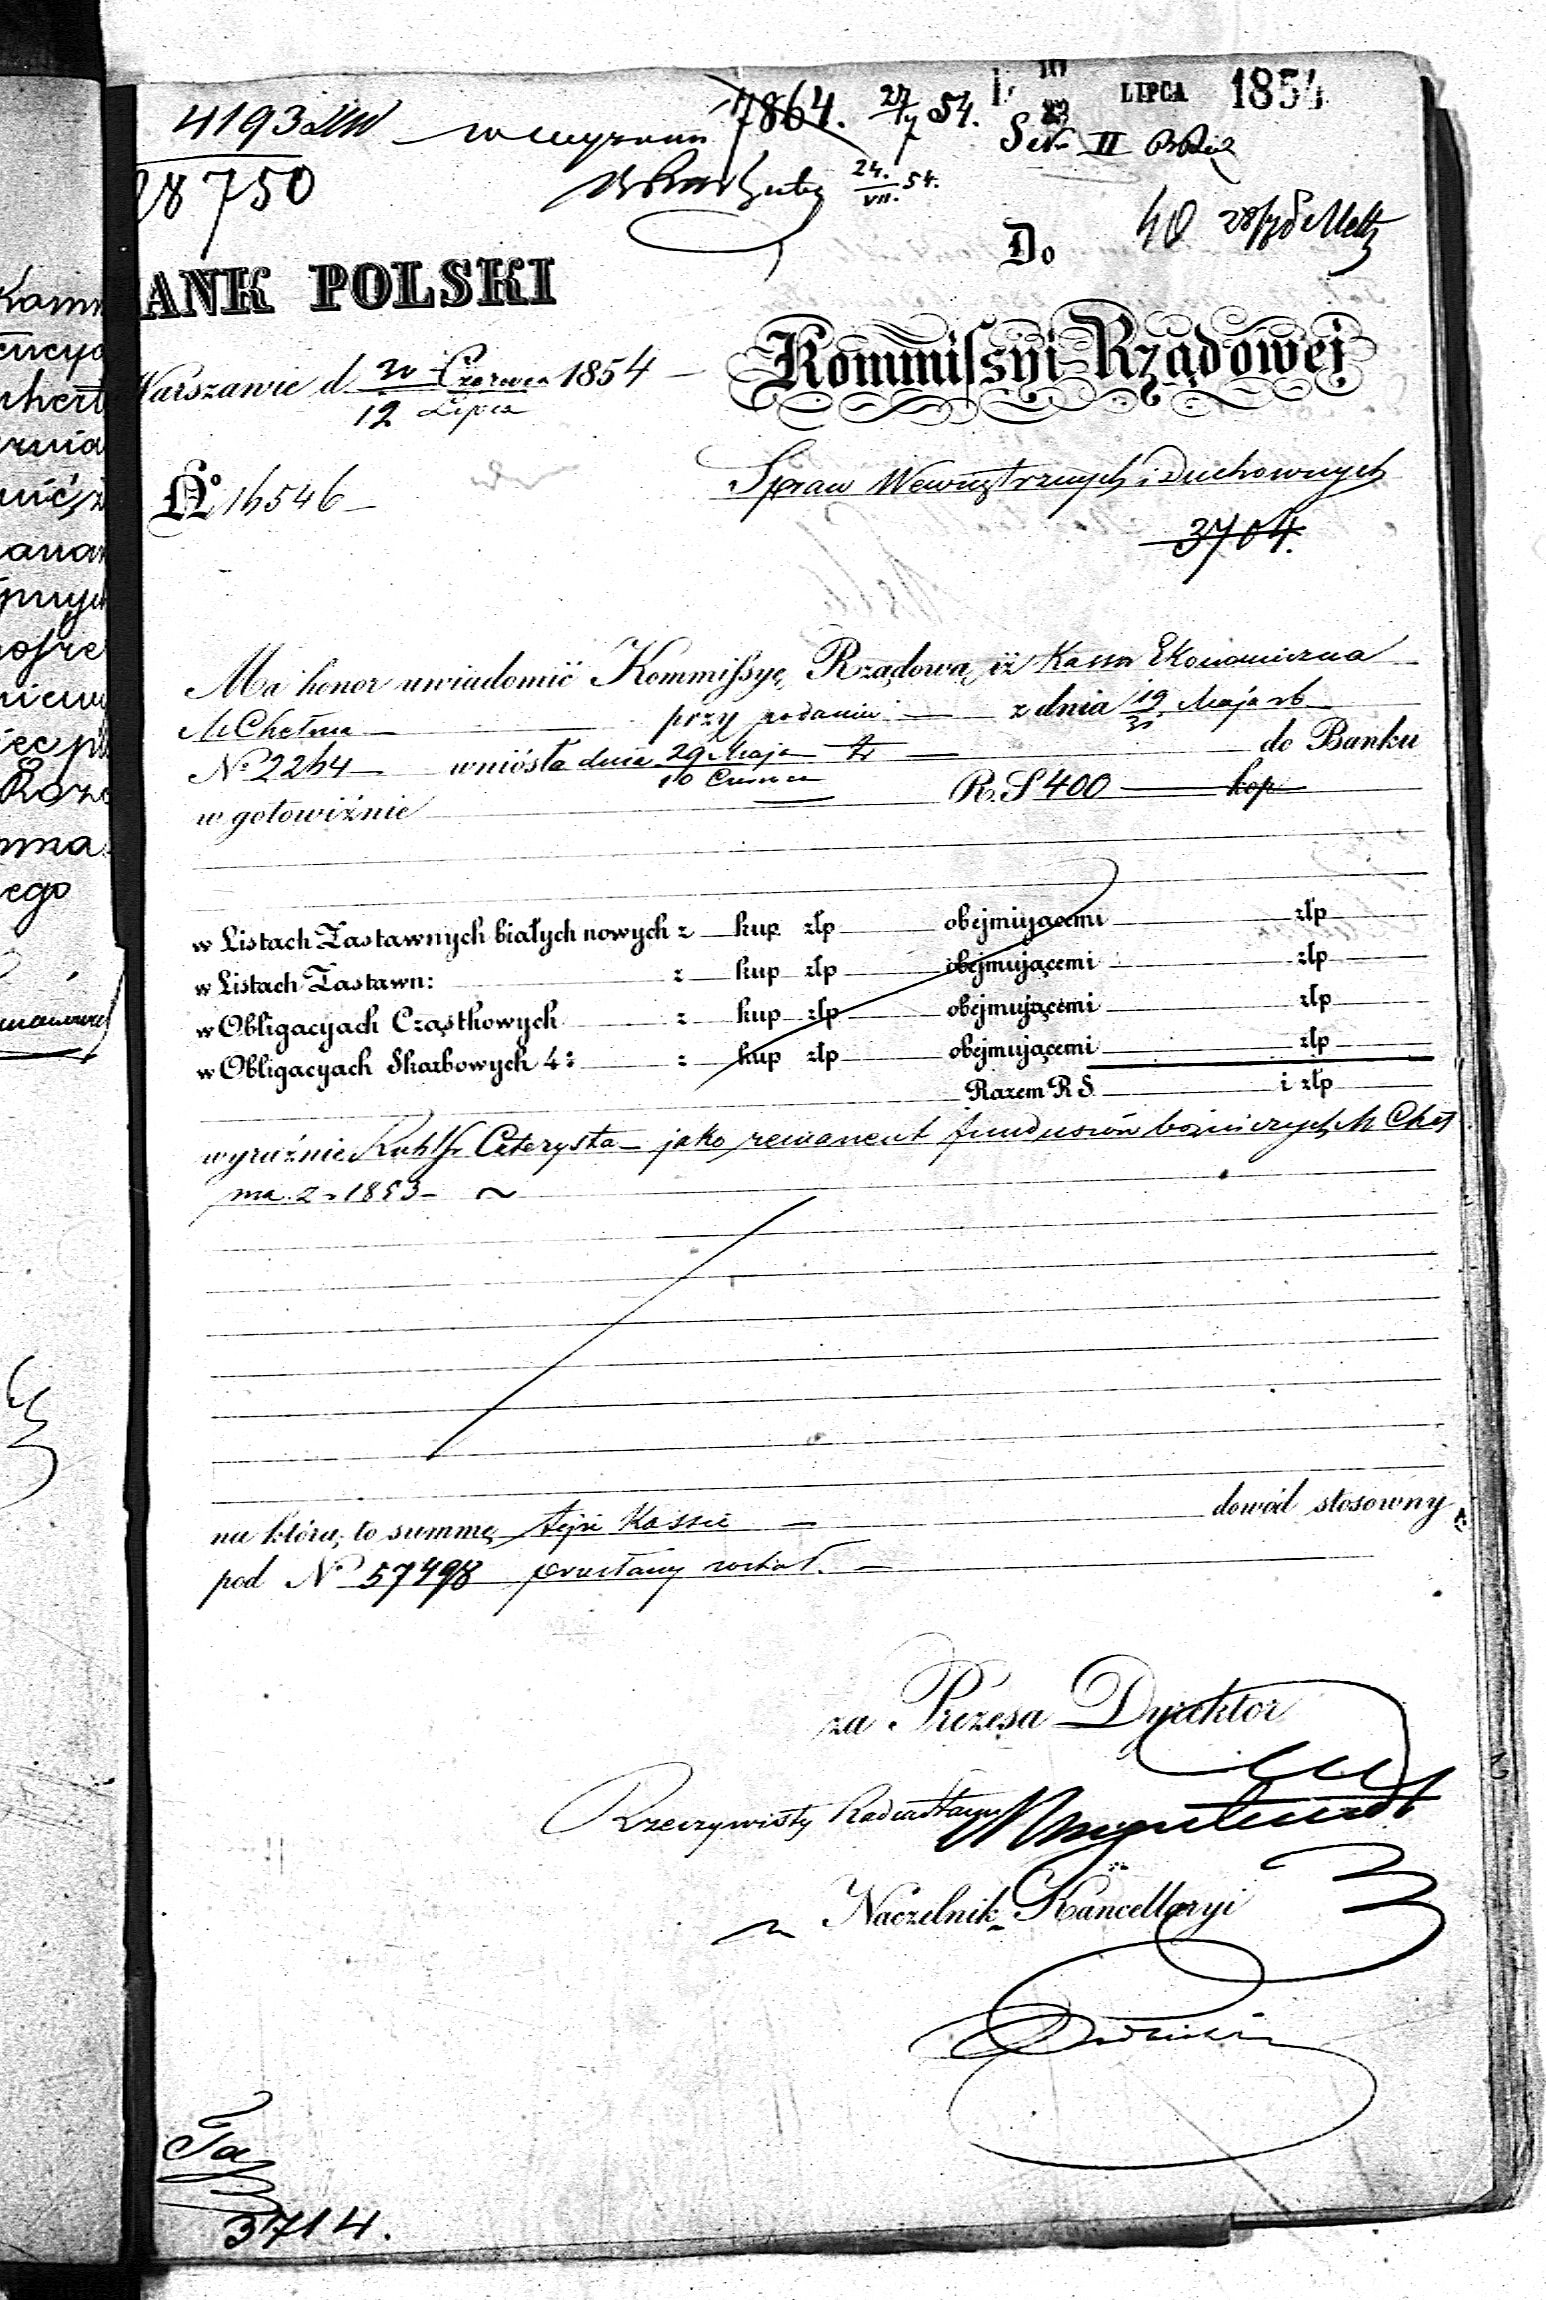 4193
7864. 27/7 54. LIPCA 1854
28750
24./VII. 54.
II
Do
BANK POLSKI
Kommissyi Rządowej
Warszawie d. 30 Czerwca 1854
12 Lipca
Spraw Wewnętrznych i Duchownych
No 16546
3704.
Ma honor uwiadomić Kommissyę Rządową iż Kassa Ekonomiczna
M Chełma przy podaniu z dnia 19/31 Maja rb
No 2264 wniósła dnia 29 Maja tr do Banku
10 Czerwca
w gotowiźnie R.S 400 kop
w Listach Zastawnych białych nowych z kup złp obejmującemi złp
w Listach Zastawn: z kup złp obejmującemi złp
w Obligacyach Cząstkowych z kup złp obejmującemi złp
w Obligacyach Skarbowych 4: z kup złp obejmującemi złp
Razem R S i złp
wyraźnie Rubli Czterysta jako remanent funduszów bożniczych M Cheł
ma z r 1853
na którą to summę tejże Kassie dowód stosowny
pod No 57498 przesłany został.
za Prezesa Dyrektor
Rzeczywisty Radca Stanu
Naczelnik Kancellaryi
3714.